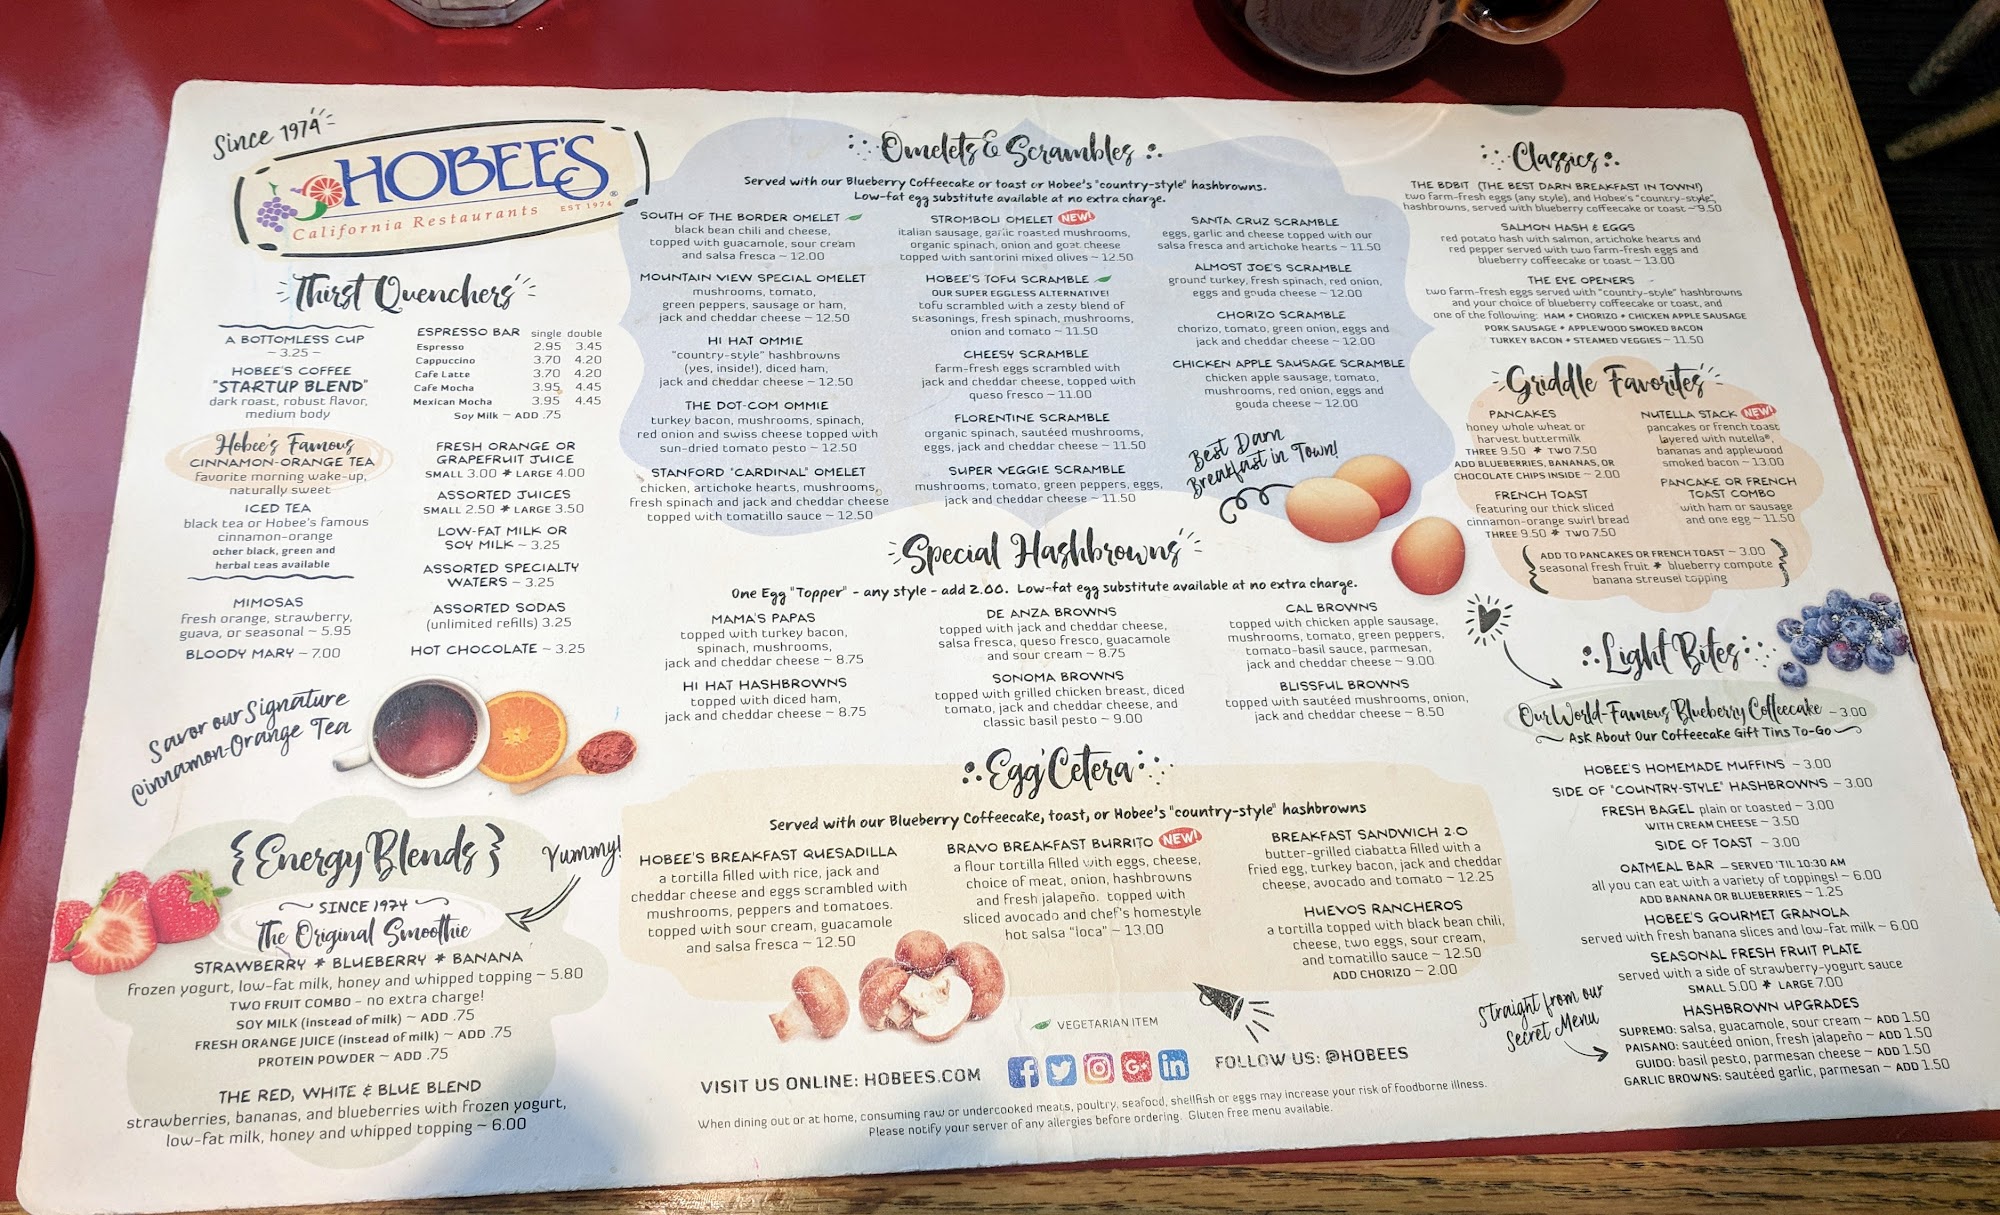 Since 1974
HOBEE'S®
California Restaurants EST 1974
Thirst Quenchers
A BOTTOMLESS CUP
~ 3.25 ~
HOBEE'S COFFEE
"STARTUP BLEND"
dark roast, robust flavor,
medium body
Hobee's Famous
CINNAMON-ORANGE TEA
favorite morning wake-up,
naturally sweet
ICED TEA
black tea or Hobee's Famous
cinnamon-orange
other black, green and
herbal teas available
MIMOSAS
fresh orange, strawberry,
guava, or seasonal ~ 5.95
BLOODY MARY ~ 7.00
ESPRESSO BAR single double
Espresso 2.95 3.45
Cappuccino 3.70 4.20
Cafe Latte 3.70 4.20
Cafe Mocha 3.95 4.45
Mexican Mocha 3.95 4.45
Soy Milk ~ ADD .75
FRESH ORANGE OR
GRAPEFRUIT JUICE
SMALL 3.00 * LARGE 4.00
ASSORTED JUICES
SMALL 2.50 * LARGE 3.50
LOW-FAT MILK OR
SOY MILK ~ 3.25
ASSORTED SPECIALTY
WATERS ~ 3.25
ASSORTED SODAS
(unlimited refills) 3.25
HOT CHOCOLATE ~ 3.25
Savor our Signature
Cinnamon-Orange Tea
{Energy Blends}
Yummy!
SINCE 1974
The Original Smoothie
STRAWBERRY * BLUEBERRY * BANANA
frozen yogurt, low-fat milk, honey and whipped topping ~ 5.80
TWO FRUIT COMBO - no extra charge!
SOY MILK (instead of milk) ~ ADD .75
FRESH ORANGE JUICE (instead of milk) ~ ADD .75
PROTEIN POWDER ~ ADD .75
THE RED, WHITE & BLUE BLEND
strawberries, bananas, and blueberries with frozen yogurt,
low-fat milk, honey and whipped topping ~ 6.00
Omelets & Scrambles
Served with our Blueberry Coffeecake or toast or Hobee's "country-style" hashbrowns.
Low-fat egg substitute available at no extra charge.
SOUTH OF THE BORDER OMELET
black bean chili and cheese,
topped with guacamole, sour cream
and salsa fresca ~ 12.00
MOUNTAIN VIEW SPECIAL OMELET
mushrooms, tomato,
green peppers, sausage or ham,
jack and cheddar cheese ~ 12.50
HI HAT OMMIE
"country-style" hashbrowns
(yes, inside!), diced ham,
jack and cheddar cheese ~ 12.50
THE DOT-COM OMMIE
turkey bacon, mushrooms, spinach,
red onion and swiss cheese topped with
sun-dried tomato pesto ~ 12.50
STANFORD "CARDINAL" OMELET
chicken, artichoke hearts, mushrooms,
fresh spinach and jack and cheddar cheese
topped with tomatillo sauce ~ 12.50
STROMBOLI OMELET NEW!
italian sausage, garlic roasted mushrooms,
organic spinach, onion and goat cheese
topped with santorini mixed olives ~ 12.50
HOBEE'S TOFU SCRAMBLE
OUR SUPER EGGLESS ALTERNATIVE!
tofu scrambled with a zesty blend of
seasonings, fresh spinach, mushrooms,
onion and tomato ~ 11.50
CHEESY SCRAMBLE
farm-fresh eggs scrambled with
jack and cheddar cheese, topped with
queso fresco ~ 11.00
FLORENTINE SCRAMBLE
organic spinach, sautéed mushrooms,
eggs, jack and cheddar cheese ~ 11.50
SUPER VEGGIE SCRAMBLE
mushrooms, tomato, green peppers, eggs,
jack and cheddar cheese ~ 11.50
SANTA CRUZ SCRAMBLE
eggs, garlic and cheese topped with our
salsa fresca and artichoke hearts ~ 11.50
ALMOST JOE'S SCRAMBLE
ground turkey, fresh spinach, red onion,
eggs and gouda cheese ~ 12.00
CHORIZO SCRAMBLE
chorizo, tomato, green onion, eggs and
jack and cheddar cheese ~ 12.00
CHICKEN APPLE SAUSAGE SCRAMBLE
chicken apple sausage, tomato,
mushrooms, red onion, eggs and
gouda cheese ~ 12.00
Best Darn
Breakfast in Town!
Special Hashbrowns
One Egg "Topper" - any style - add 2.00. Low-fat egg substitute available at no extra charge.
MAMA'S PAPAS
topped with turkey bacon,
spinach, mushrooms,
jack and cheddar cheese ~ 8.75
HI HAT HASHBROWNS
topped with diced ham,
jack and cheddar cheese ~ 8.75
DE ANZA BROWNS
topped with jack and cheddar cheese,
salsa fresca, queso fresco, guacamole
and sour cream ~ 8.75
SONOMA BROWNS
topped with grilled chicken breast, diced
tomato, jack and cheddar cheese, and
classic basil pesto ~ 9.00
CAL BROWNS
topped with chicken apple sausage,
mushrooms, tomato, green peppers,
tomato-basil sauce, parmesan,
jack and cheddar cheese ~ 9.00
BLISSFUL BROWNS
topped with sautéed mushrooms, onion,
jack and cheddar cheese ~ 8.50
Egg'Cetera
Served with our Blueberry Coffeecake, toast, or Hobee's "country-style" hashbrowns
HOBEE'S BREAKFAST QUESADILLA
a tortilla filled with rice, jack and
cheddar cheese and eggs scrambled with
mushrooms, peppers and tomatoes.
topped with sour cream, guacamole
and salsa fresca ~ 12.50
BRAVO BREAKFAST BURRITO NEW!
a flour tortilla filled with eggs, cheese,
choice of meat, onion, hashbrowns
and fresh jalapeño. topped with
sliced avocado and chef's homestyle
hot salsa "loca" ~ 13.00
BREAKFAST SANDWICH 2.0
butter-grilled ciabatta filled with a
fried egg, turkey bacon, jack and cheddar
cheese, avocado and tomato ~ 12.25
HUEVOS RANCHEROS
a tortilla topped with black bean chili,
cheese, two eggs, sour cream,
and tomatillo sauce ~ 12.50
ADD CHORIZO ~ 2.00
VEGETARIAN ITEM
VISIT US ONLINE: HOBEES.COM
FOLLOW US: @HOBEES
When dining out or at home, consuming raw or undercooked meats, poultry, seafood, shellfish or eggs may increase your risk of foodborne illness.
Please notify your server of any allergies before ordering. Gluten free menu available.
Classics
THE BDBIT (THE BEST DARN BREAKFAST IN TOWN!)
two farm-fresh eggs (any style), and Hobee's "country-style"
hashbrowns, served with blueberry coffeecake or toast ~ 9.50
SALMON HASH & EGGS
red potato hash with salmon, artichoke hearts and
red pepper served with two farm-fresh eggs and
blueberry coffeecake or toast ~ 13.00
THE EYE OPENERS
two farm-fresh eggs served with "country-style" hashbrowns
and your choice of blueberry coffeecake or toast, and
one of the following: HAM • CHORIZO • CHICKEN APPLE SAUSAGE
PORK SAUSAGE • APPLEWOOD SMOKED BACON
TURKEY BACON • STEAMED VEGGIES ~ 11.50
Griddle Favorites
PANCAKES
honey whole wheat or
harvest buttermilk
THREE 9.50 * TWO 7.50
ADD BLUEBERRIES, BANANAS, OR
CHOCOLATE CHIPS INSIDE ~ 2.00
FRENCH TOAST
featuring our thick sliced
cinnamon-orange swirl bread
THREE 9.50 * TWO 7.50
NUTELLA STACK NEW!
pancakes or french toast
layered with nutella®,
bananas and applewood
smoked bacon ~ 13.00
PANCAKE OR FRENCH
TOAST COMBO
with ham or sausage
and one egg ~ 11.50
ADD TO PANCAKES OR FRENCH TOAST ~ 3.00
seasonal fresh fruit * blueberry compote
banana streusel topping
Light Bites
Our World-Famous Blueberry Coffeecake ~ 3.00
Ask About Our Coffeecake Gift Tins To-Go
HOBEE'S HOMEMADE MUFFINS ~ 3.00
SIDE OF "COUNTRY-STYLE" HASHBROWNS ~ 3.00
FRESH BAGEL plain or toasted ~ 3.00
WITH CREAM CHEESE ~ 3.50
SIDE OF TOAST ~ 3.00
OATMEAL BAR ~ SERVED 'TIL 10:30 AM
all you can eat with a variety of toppings! ~ 6.00
ADD BANANA OR BLUEBERRIES ~ 1.25
HOBEE'S GOURMET GRANOLA
served with fresh banana slices and low-fat milk ~ 6.00
SEASONAL FRESH FRUIT PLATE
served with a side of strawberry-yogurt sauce
SMALL 5.00 * LARGE 7.00
Straight from our
Secret Menu
HASHBROWN UPGRADES
SUPREMO: salsa, guacamole, sour cream ~ ADD 1.50
PAISANO: sautéed onion, fresh jalapeño ~ ADD 1.50
GUIDO: basil pesto, parmesan cheese ~ ADD 1.50
GARLIC BROWNS: sautéed garlic, parmesan ~ ADD 1.50